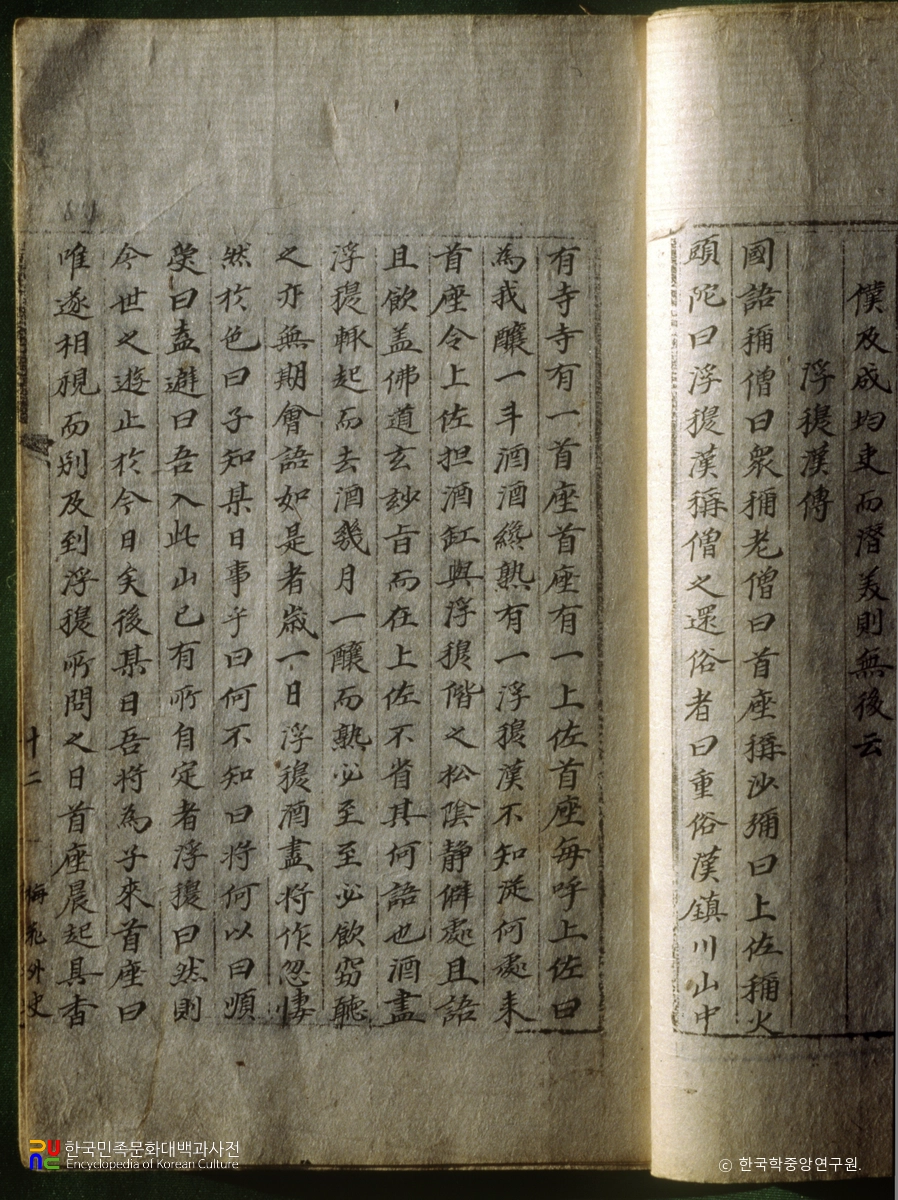 僕及成均吏而潛美則無後云
浮穆漢傳
國語稱僧曰衆稱老僧曰首座稱沙彌曰上佐稱火
頭陀曰浮穆漢稱僧之還俗者曰重俗漢鎮川山中
有寺寺有一首座首座有一上佐首座每呼上佐曰
為我釀一斗酒酒纔熟有一浮穆漢不知從何處来
首座令上佐担酒缸與浮穆偕之松陰静僻處且語
且飲盖佛道玄玅旨而在上佐不省其何語也酒盡
浮穆輙起而去酒幾月一釀而熟必至至必飲窃聽
之亦無期會語如是者歲一日浮穆酒盡將作忽悽
然於色曰子知某日事乎曰何不知曰將何以曰順
受曰盍避曰吾入此山已有所自定者浮穆曰然則
今世之遊止於今日矣後某日吾將為子來首座曰
唯遂相視而別及到浮穆所問之日首座晨起具香
十二
梅花外史
한국민족문화대백과사전
Encyclopedia of Korean Culture
© 한국학중앙연구원.